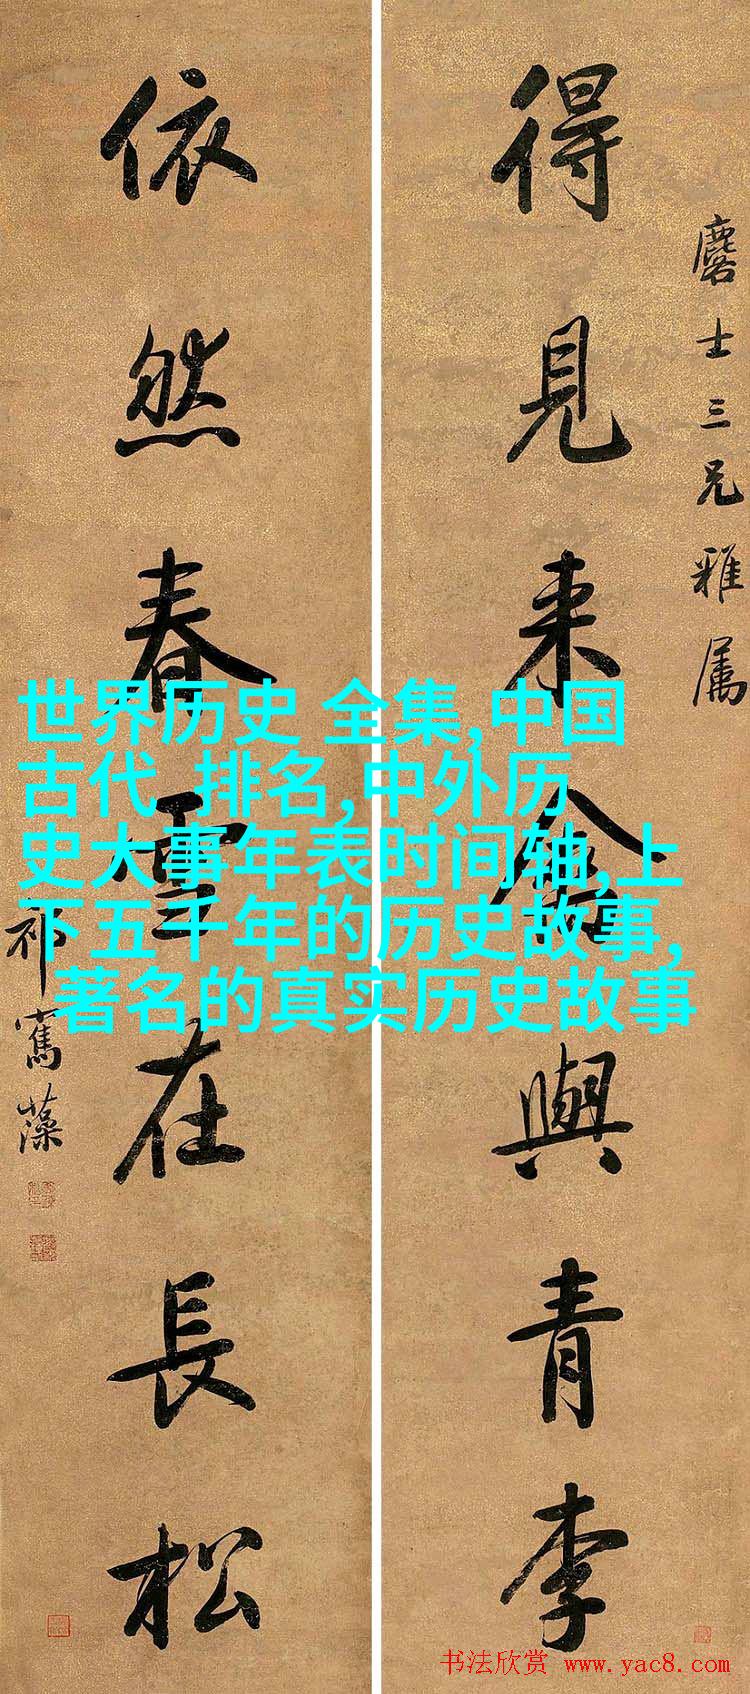 麐士三兄雅属
得見来禽與青李
依然春雪在長松
祁寯藻
世界历史 全集,中国
古代 排名,中外历
史大事年表时间轴,上
下五千年的历史故事,
著名的真实历史故事
书法欣赏 www.yac8.com